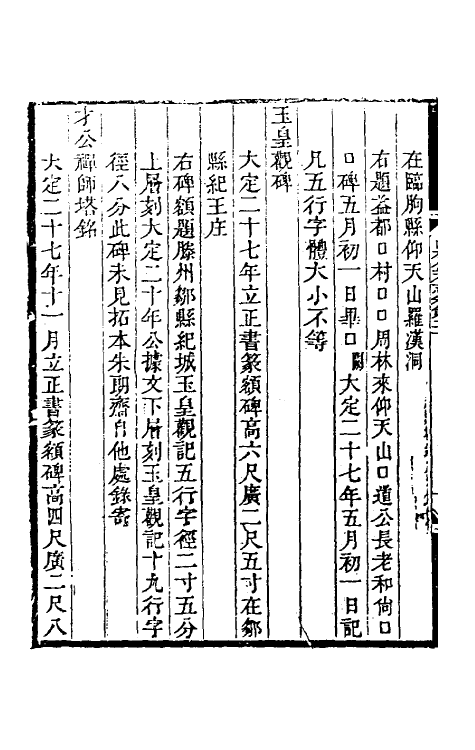 在臨朐縣仰天山羅漢洞
右題益都口村口口周林來仰天山口道公長老和尙口
口碑五月初一日畢口闕大定二十七年五月初一日記
凡五行字體大小不等
玉皇觀碑
大定二十七年立正書篆額碑高六尺廣二尺五寸在鄒
縣紀王庄
右碑額題滕州鄒縣紀城玉皇觀記五行字徑二寸五分
上層刻大定二十年公據文下層刻玉皇觀記十九行字
徑八分此碑未見拓本朱朗齋自他處錄寄
才公禪師塔銘
大定二十七年十一月立正書篆額碑高四尺廣二尺八